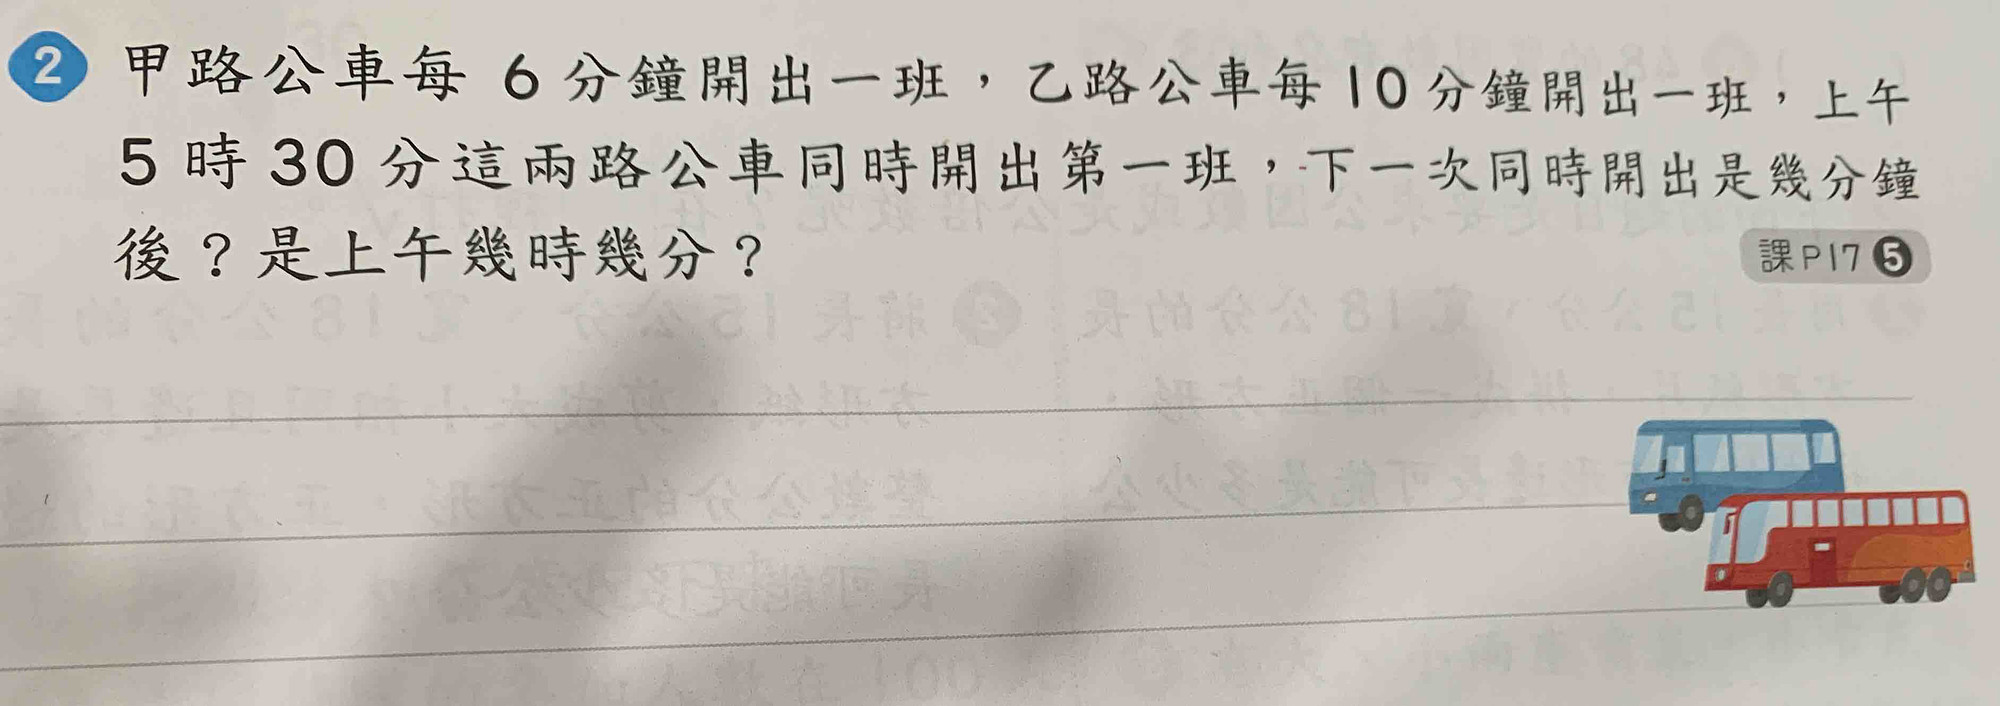 2 甲路公車每 6 分鐘開出一班，乙路公車每 10 分鐘開出一班，上午
5 時 30 分這兩路公車同時開出第一班，下一次同時開出是幾分鐘
後？是上午幾時幾分？
課P17 5